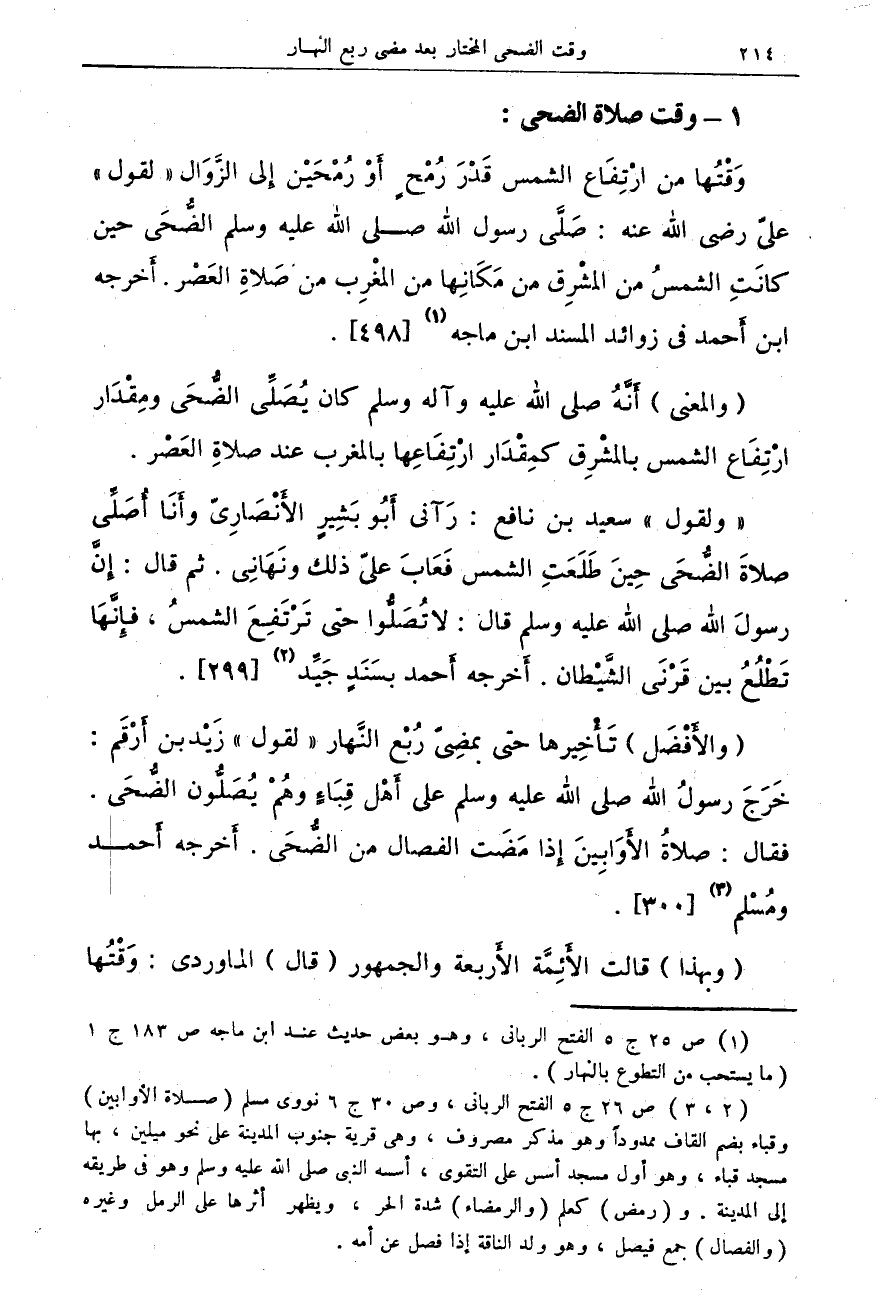 ٢١٤ وقت الضحى المختار بعد مضى ربع النهار
١ – وقت صلاة الضحى :
وَقْتُها من ارْتِفَاع الشمس قَدْرَ رُمْحٍ أَوْ رُمْحَيْن إلى الزَّوَال « لقول »
علىّ رضى الله عنه : صَلَّى رسول الله صلى الله عليه وسلم الضُّحَى حين
كانَتِ الشمسُ من المشْرِق من مَكَانِها من المغْرِب من صَلاةِ العَصْر . أَخرجه
ابن أَحمد فى زوائد المسند ابن ماجه (١) [٤٩٨] .
( والمعنى ) أَنَّهُ صلى الله عليه وآله وسلم كان يُصَلِّى الضُّحَى ومِقْدَار
ارْتِفَاع الشمس بالمشْرِق كمِقْدَار ارْتِفَاعِها بالمغرب عند صلاةِ العَصْر .
« ولقول » سعيد بن نافع : رَآنى أَبُو بَشِيرٍ الأَنْصَارِىّ وأَنَا أُصَلِّى
صلاةَ الضُّحَى حِينَ طَلَعَتِ الشمس فَعَابَ علىّ ذلك ونَهَانِى . ثم قال : إِنَّ
رسولَ الله صلى الله عليه وسلم قال : لاتُصَلُّوا حتى تَرْتَفِعَ الشمسُ ، فإِنَّهَا
تَطْلُعُ بين قَرْنَى الشَّيْطان . أَخرجه أَحمد بسَنَدٍ جَيِّد (٢) [٢٩٩] .
( والأَفْضَل ) تَأْخِيرها حتى بمضِىّ رُبْع النَّهار « لقول » زَيْدبن أَرْقَم :
خَرَجَ رسولُ الله صلى الله عليه وسلم على أَهْل قِبَاءٍ وهُمْ يُصَلُّون الضُّحَى .
فقال : صلاةُ الأَوَابِينَ إِذا مَضَت الفصال من الضُّحَى . أَخرجه أَحمد
ومُسْلم (٣) [٣٠٠] .
( وبهذا ) قالت الأَئِمَّة الأَربعة والجمهور ( قال ) الماوردى : وَقْتُها
(١) ص ٢٥ ج ٥ الفتح الربانى ، وهو بعض حديث عند ابن ماجه ص ١٨٣ ج ١
( ما يستحب من التطوع بالنهار ) .
( ٢ ، ٣ ) ص ٢٦ ج ٥ الفتح الربانى ، وص ٣٠ ج ٦ نووى مسلم ( صلاة الأوابين )
وقباء بضم القاف ممدوداً وهو مذكر مصروف ، وهى قرية جنوب المدينة على نحو ميلين ، بها
مسجد قباء ، وهو أول مسجد أسس على التقوى ، أسسه النبى صلى الله عليه وسلم وهو فى طريقه
إلى المدينة . و ( رمض ) كعلم ( والرمضاء ) شدة الحر ، ويظهر أثرها على الرمل وغيره
( والفصال ) جمع فيصل ، وهو ولد الناقة إذا فصل عن أمه .